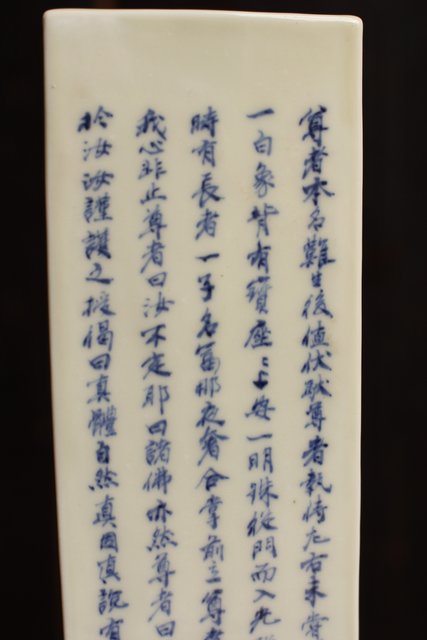 尊者本名難生後值伏馱尊者執侍左右未嘗
一白象背有寶座〻上安一明珠從門而入光
時有長者一子名富那夜奢合掌前立尊者
我心非止尊者曰汝不定耶曰諸佛亦然尊者曰
於汝汝謹護之授偈曰真體自然真因真說有